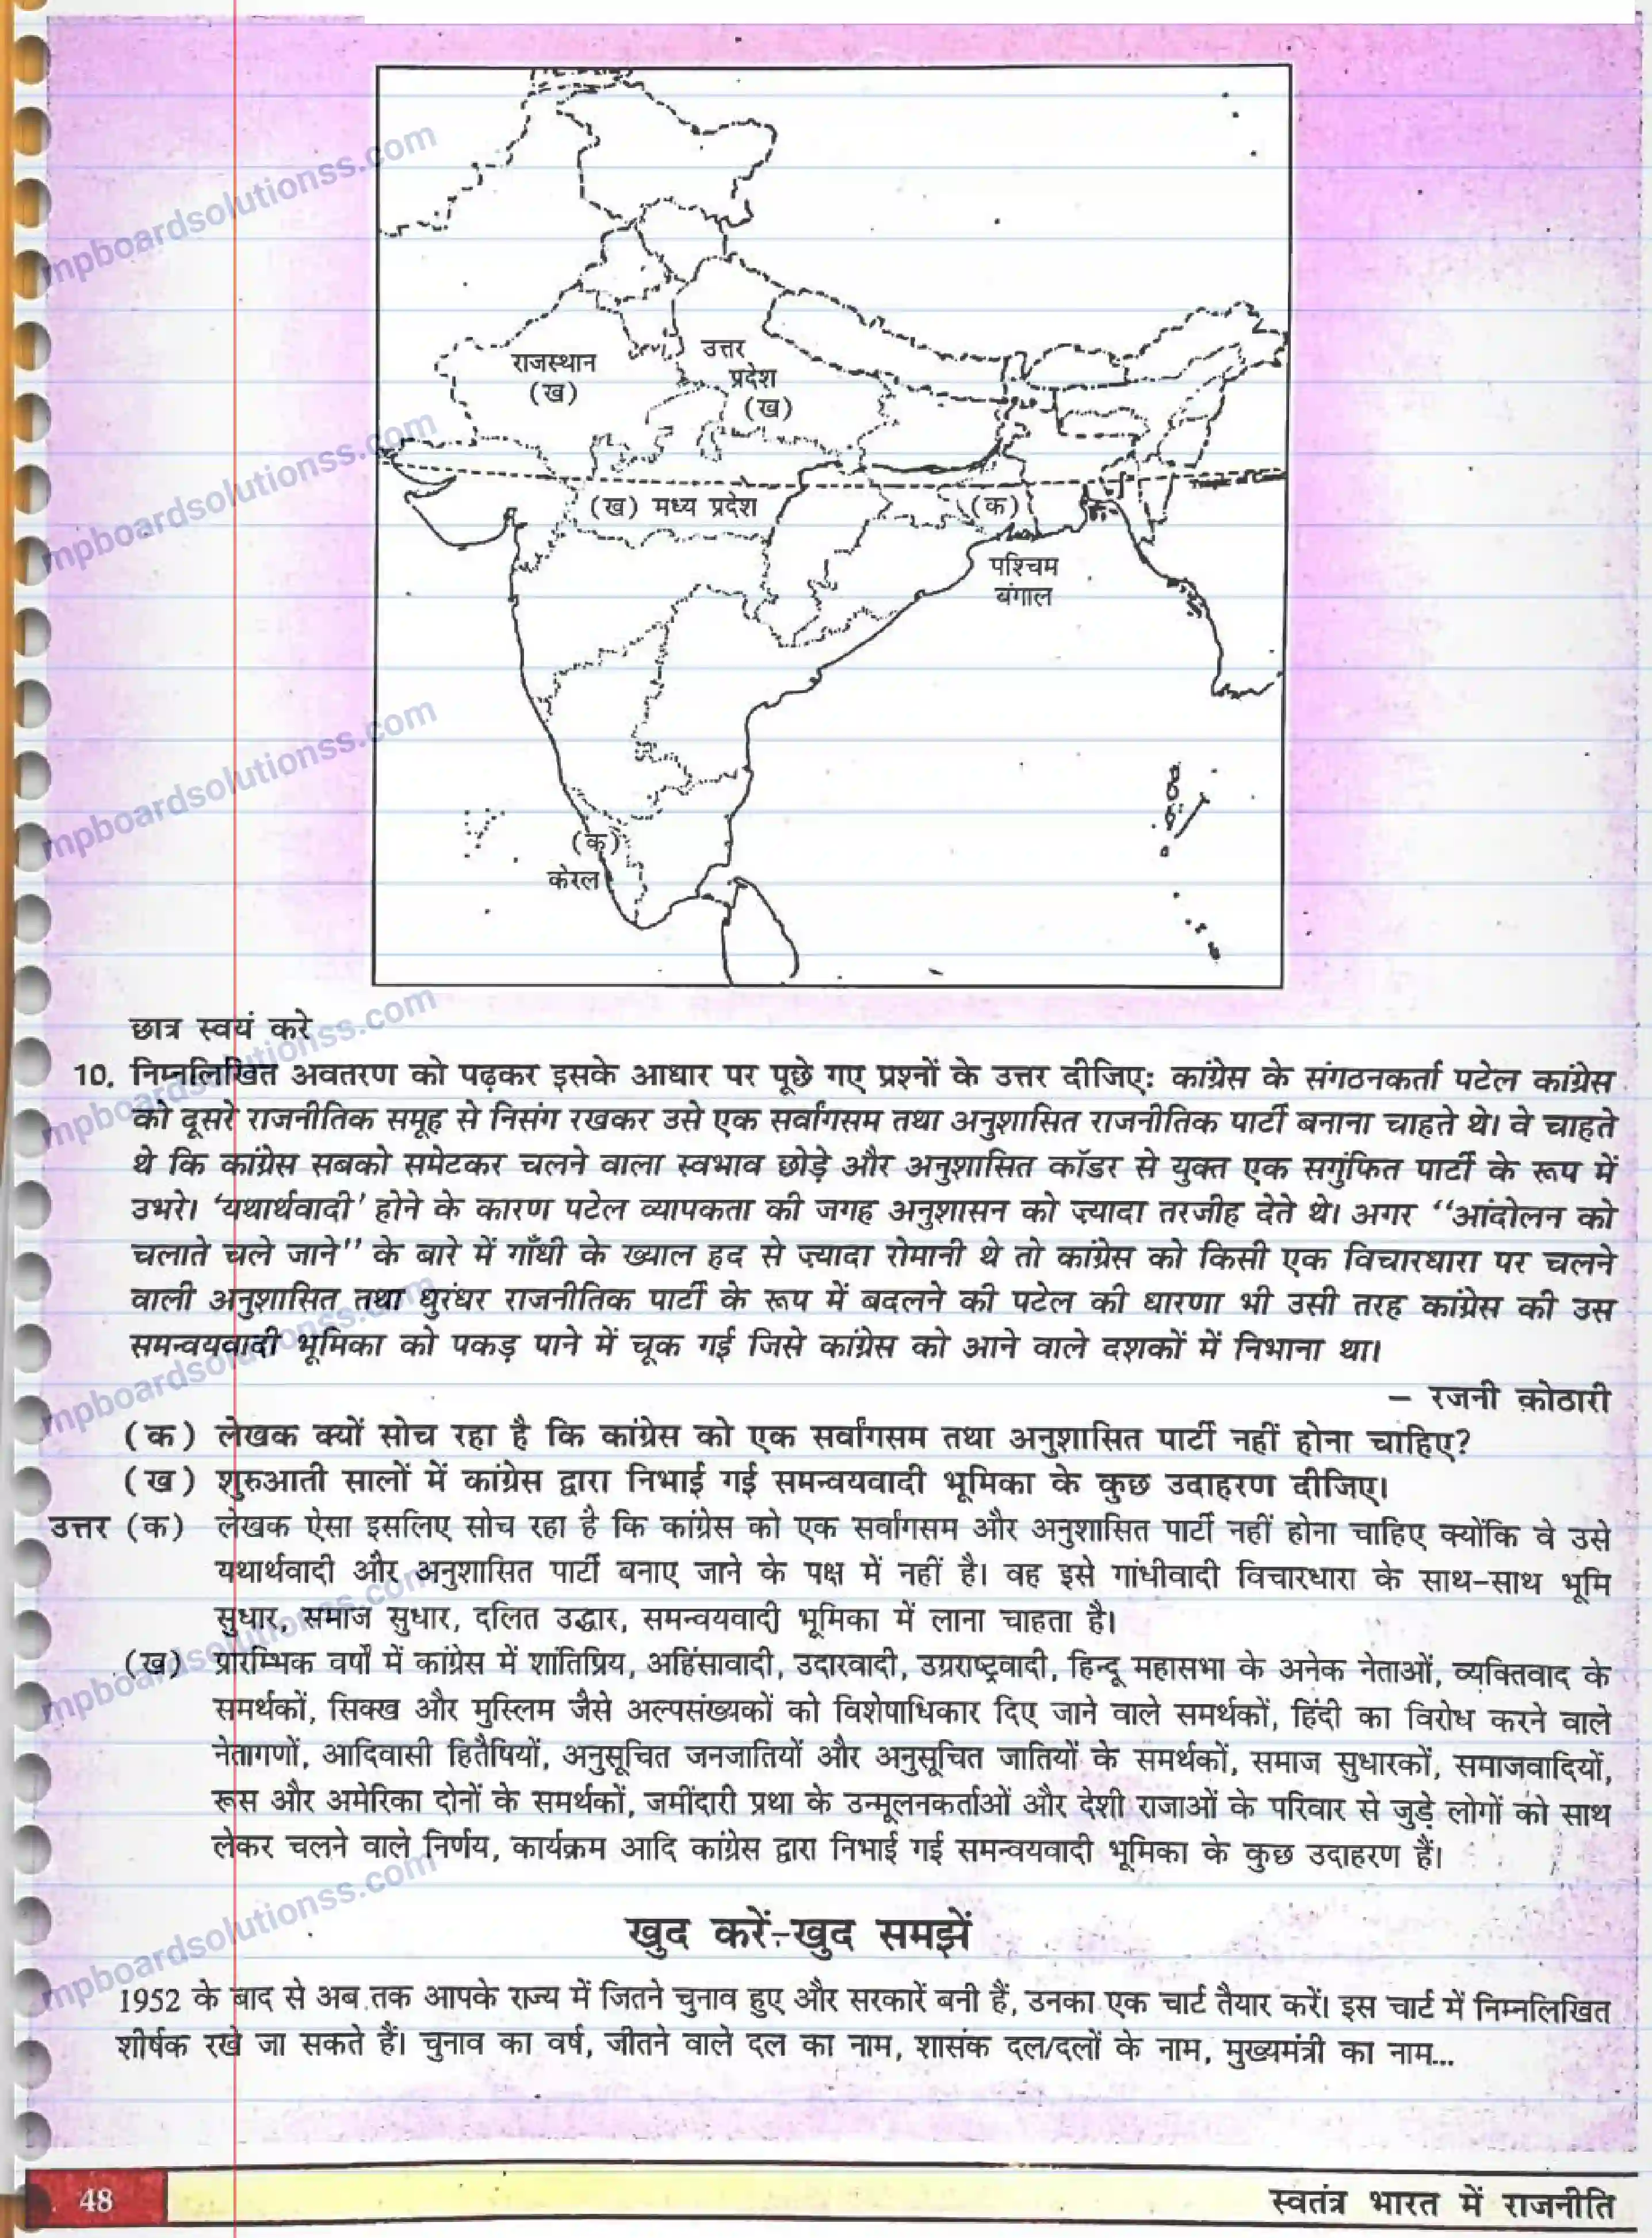 राजस्थान
(ख)
उत्तर
प्रदेश
(ख)
(ख) मध्य प्रदेश
(क)
पश्चिम
बंगाल
(क)
केरल
छात्र स्वयं करे
10. निम्नलिखित अवतरण को पढ़कर इसके आधार पर पूछे गए प्रश्नों के उत्तर दीजिएः कांग्रेस के संगठनकर्ता पटेल कांग्रेस
को दूसरे राजनीतिक समूह से निसंग रखकर उसे एक सर्वांगसम तथा अनुशासित राजनीतिक पार्टी बनाना चाहते थे। वे चाहते
थे कि कांग्रेस सबको समेटकर चलने वाला स्वभाव छोड़े और अनुशासित कॉडर से युक्त एक सगुंफित पार्टी के रूप में
उभरे। ‘यथार्थवादी’ होने के कारण पटेल व्यापकता की जगह अनुशासन को ज़्यादा तरजीह देते थे। अगर “आंदोलन को
चलाते चले जाने” के बारे में गाँधी के ख्याल हद से ज़्यादा रोमानी थे तो कांग्रेस को किसी एक विचारधारा पर चलने
वाली अनुशासित तथा धुरंधर राजनीतिक पार्टी के रूप में बदलने की पटेल की धारणा भी उसी तरह कांग्रेस की उस
समन्वयवादी भूमिका को पकड़ पाने में चूक गई जिसे कांग्रेस को आने वाले दशकों में निभाना था।
– रजनी कोठारी
(क) लेखक क्यों सोच रहा है कि कांग्रेस को एक सर्वांगसम तथा अनुशासित पार्टी नहीं होना चाहिए?
(ख) शुरुआती सालों में कांग्रेस द्वारा निभाई गई समन्वयवादी भूमिका के कुछ उदाहरण दीजिए।
उत्तर (क) लेखक ऐसा इसलिए सोच रहा है कि कांग्रेस को एक सर्वांगसम और अनुशासित पार्टी नहीं होना चाहिए क्योंकि वे उसे
यथार्थवादी और अनुशासित पार्टी बनाए जाने के पक्ष में नहीं है। वह इसे गांधीवादी विचारधारा के साथ-साथ भूमि
सुधार, समाज सुधार, दलित उद्धार, समन्वयवादी भूमिका में लाना चाहता है।
(ख) प्रारम्भिक वर्षों में कांग्रेस में शांतिप्रिय, अहिंसावादी, उदारवादी, उग्रराष्ट्रवादी, हिन्दू महासभा के अनेक नेताओं, व्यक्तिवाद के
समर्थकों, सिक्ख और मुस्लिम जैसे अल्पसंख्यकों को विशेषाधिकार दिए जाने वाले समर्थकों, हिंदी का विरोध करने वाले
नेतागणों, आदिवासी हितैषियों, अनुसूचित जनजातियों और अनुसूचित जातियों के समर्थकों, समाज सुधारकों, समाजवादियों,
रूस और अमेरिका दोनों के समर्थकों, जमींदारी प्रथा के उन्मूलनकर्ताओं और देशी राजाओं के परिवार से जुड़े लोगों को साथ
लेकर चलने वाले निर्णय, कार्यक्रम आदि कांग्रेस द्वारा निभाई गई समन्वयवादी भूमिका के कुछ उदाहरण हैं।
खुद करें-खुद समझें
1952 के बाद से अब तक आपके राज्य में जितने चुनाव हुए और सरकारें बनी हैं, उनका एक चार्ट तैयार करें। इस चार्ट में निम्नलिखित
शीर्षक रखे जा सकते हैं। चुनाव का वर्ष, जीतने वाले दल का नाम, शासंक दल/दलों के नाम, मुख्यमंत्री का नाम...
48
स्वतंत्र भारत में राजनीति
mpboardsolutionss.com
mpboardsolutionss.com
mpboardsolutionss.com
mpboardsolutionss.com
mpboardsolutionss.com
mpboardsolutionss.com
mpboardsolutionss.com